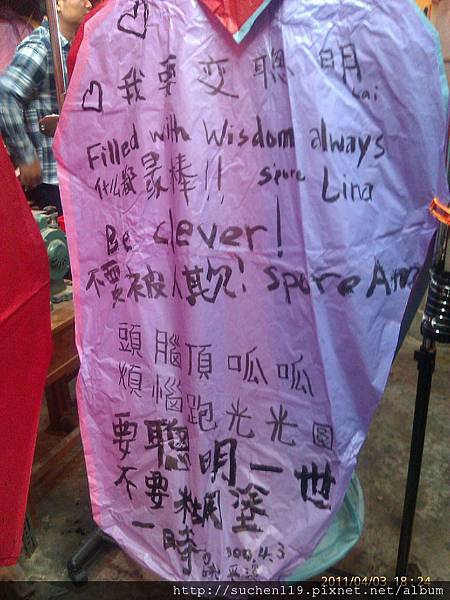 我要变聰明
Lai
Filled with Wisdom always
什么都最棒!! spore Lina
Be clever!
不要被人欺!
頭腦頂呱呱
煩惱跑光光
要聰明一世
不要糊塗
一時。
2011/04/03 18:24
http://suchen119.pixnet.net/album